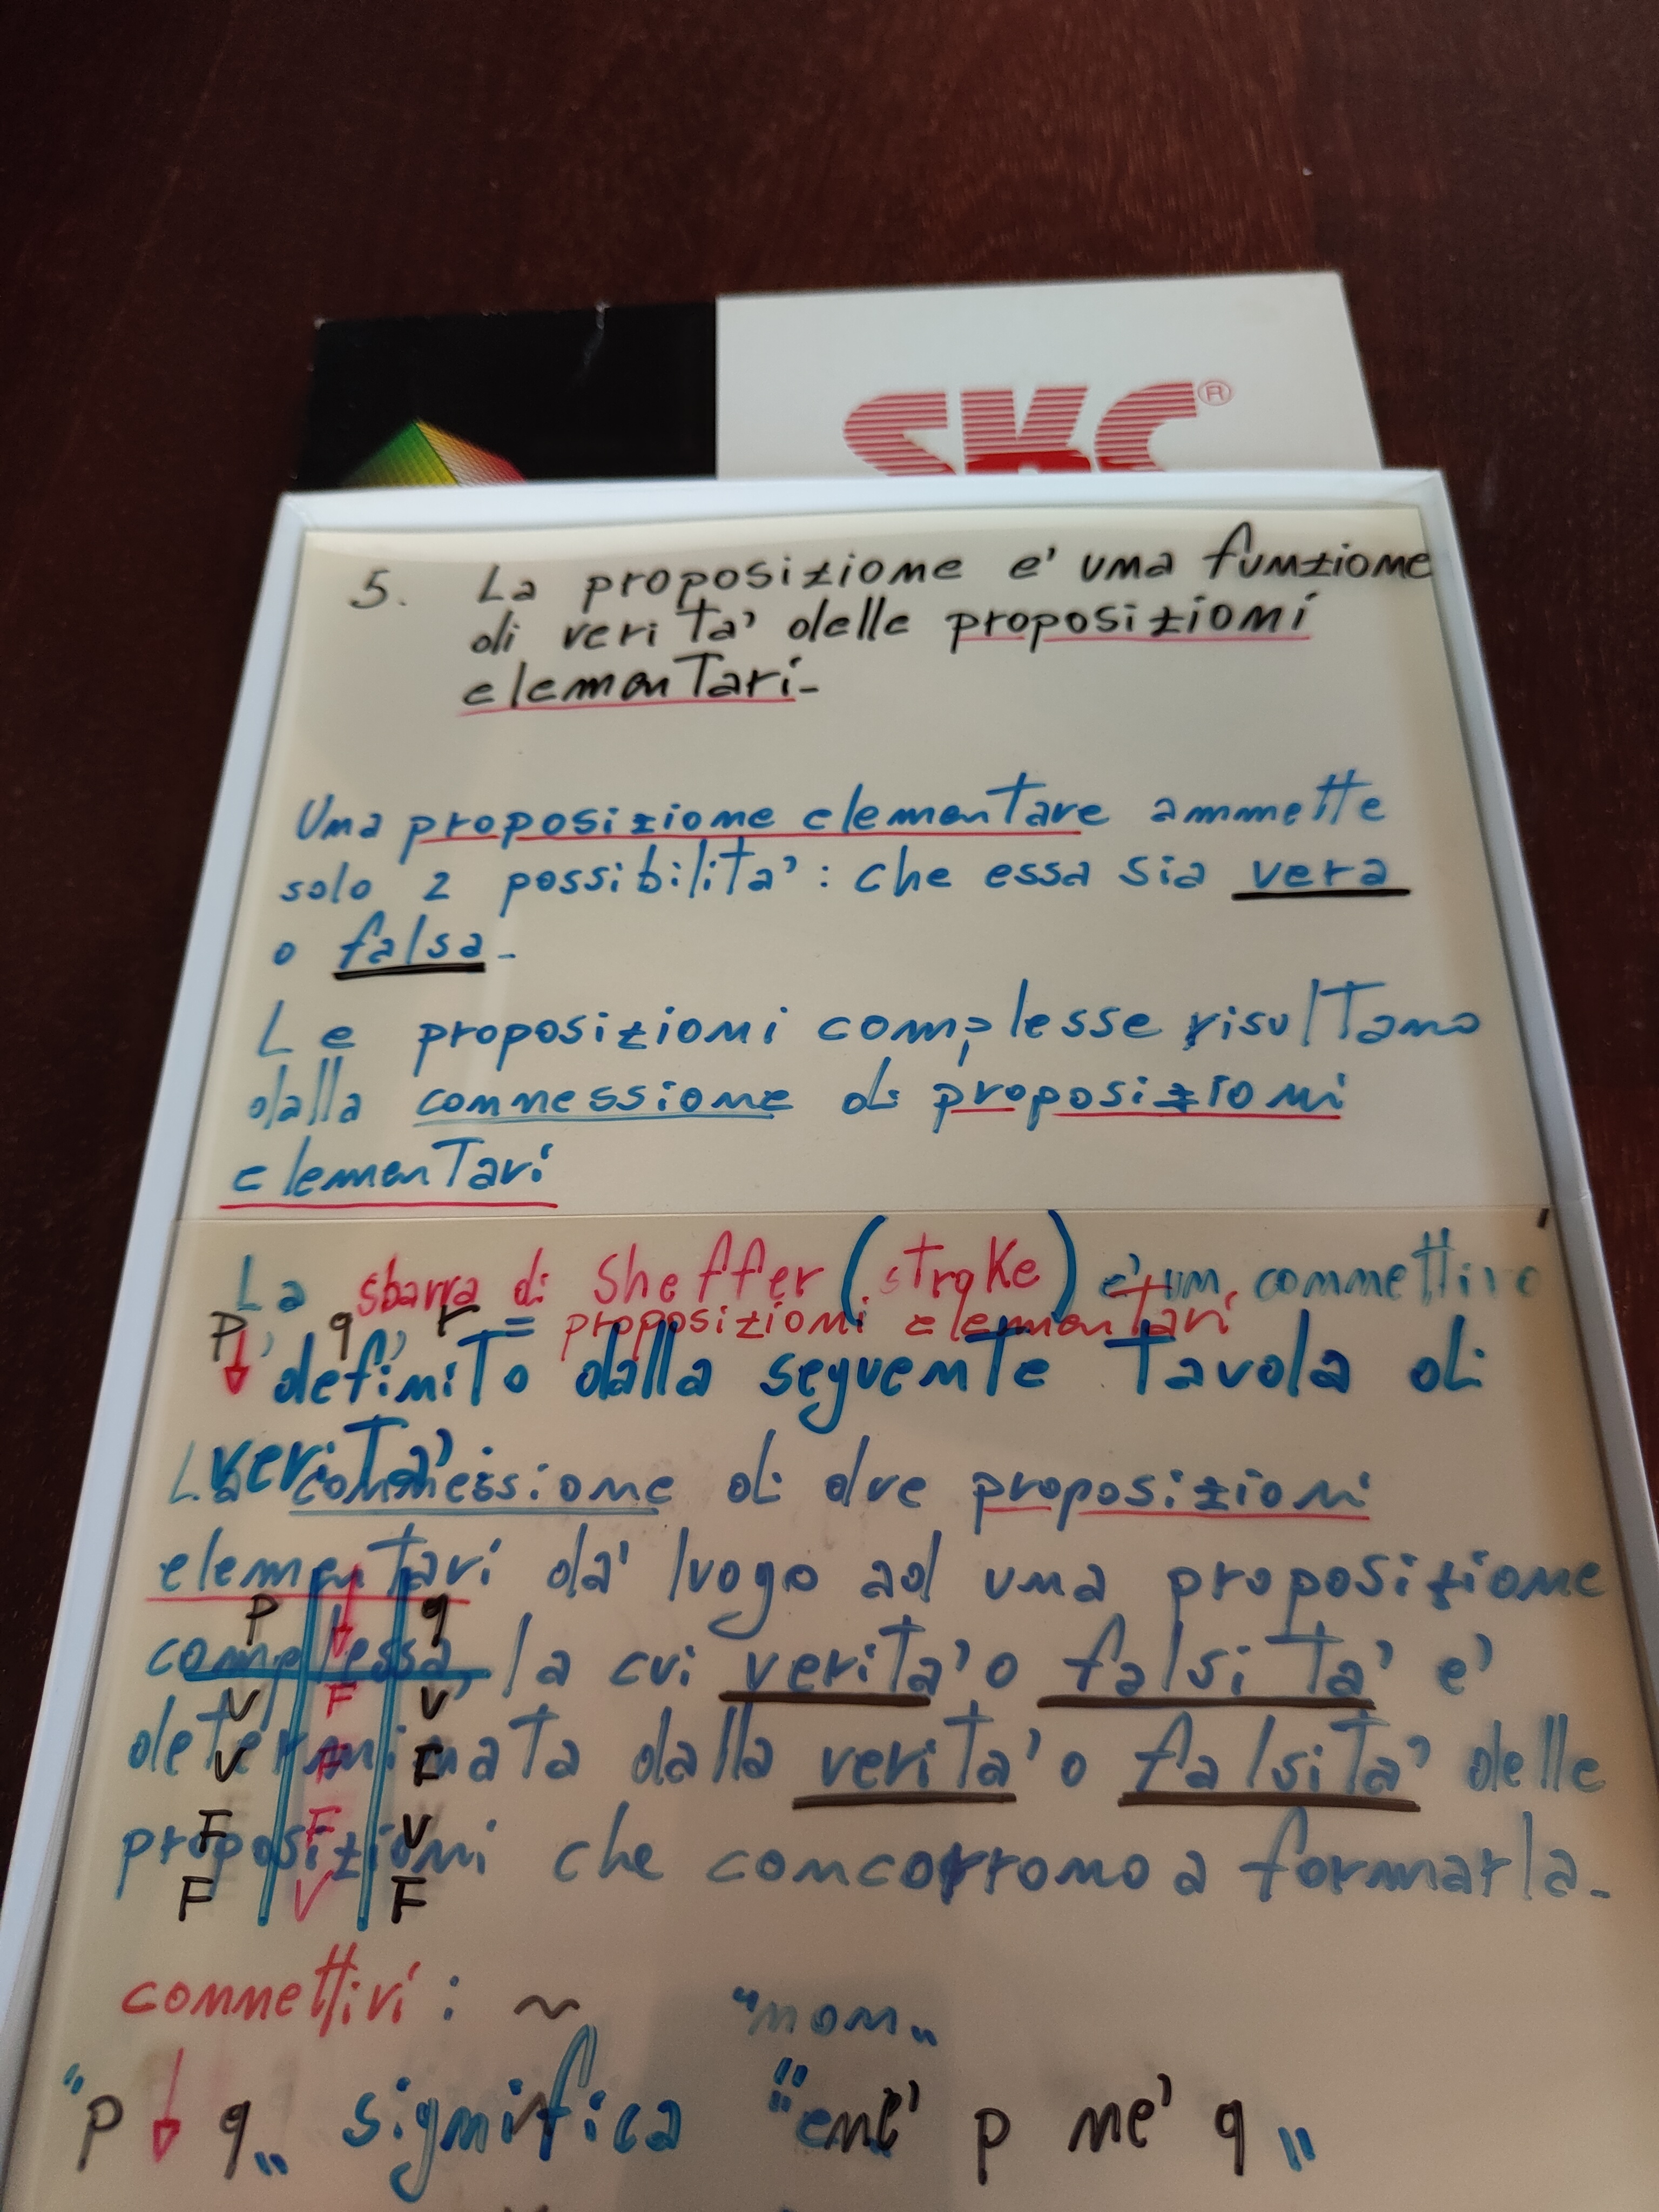 SKC®
5. La proposizione e' una funzione
di verita' delle proposizioni
elementari-
Una proposizione elementare ammette
solo 2 possibilita': che essa sia vera
o falsa-
Le proposizioni complesse risultano
dalla connessione di proposizioni
elementari
La sbarra di Sheffer (stroke) e' un connettivo
p, q, r = proposizioni elementari
↓ definito dalla seguente tavola di
verita'
La connessione di due proposizioni
elementari da' luogo ad una proposizione
p ↓ q
complessa, la cui verita' o falsita' e'
V F V
determinata dalla verita' o falsita' delle
V F F
F F V
proposizioni che concorrono a formarla-
F V F
connettivi: ~ "non"
"p ↓ q" significa "ne' p ne' q"